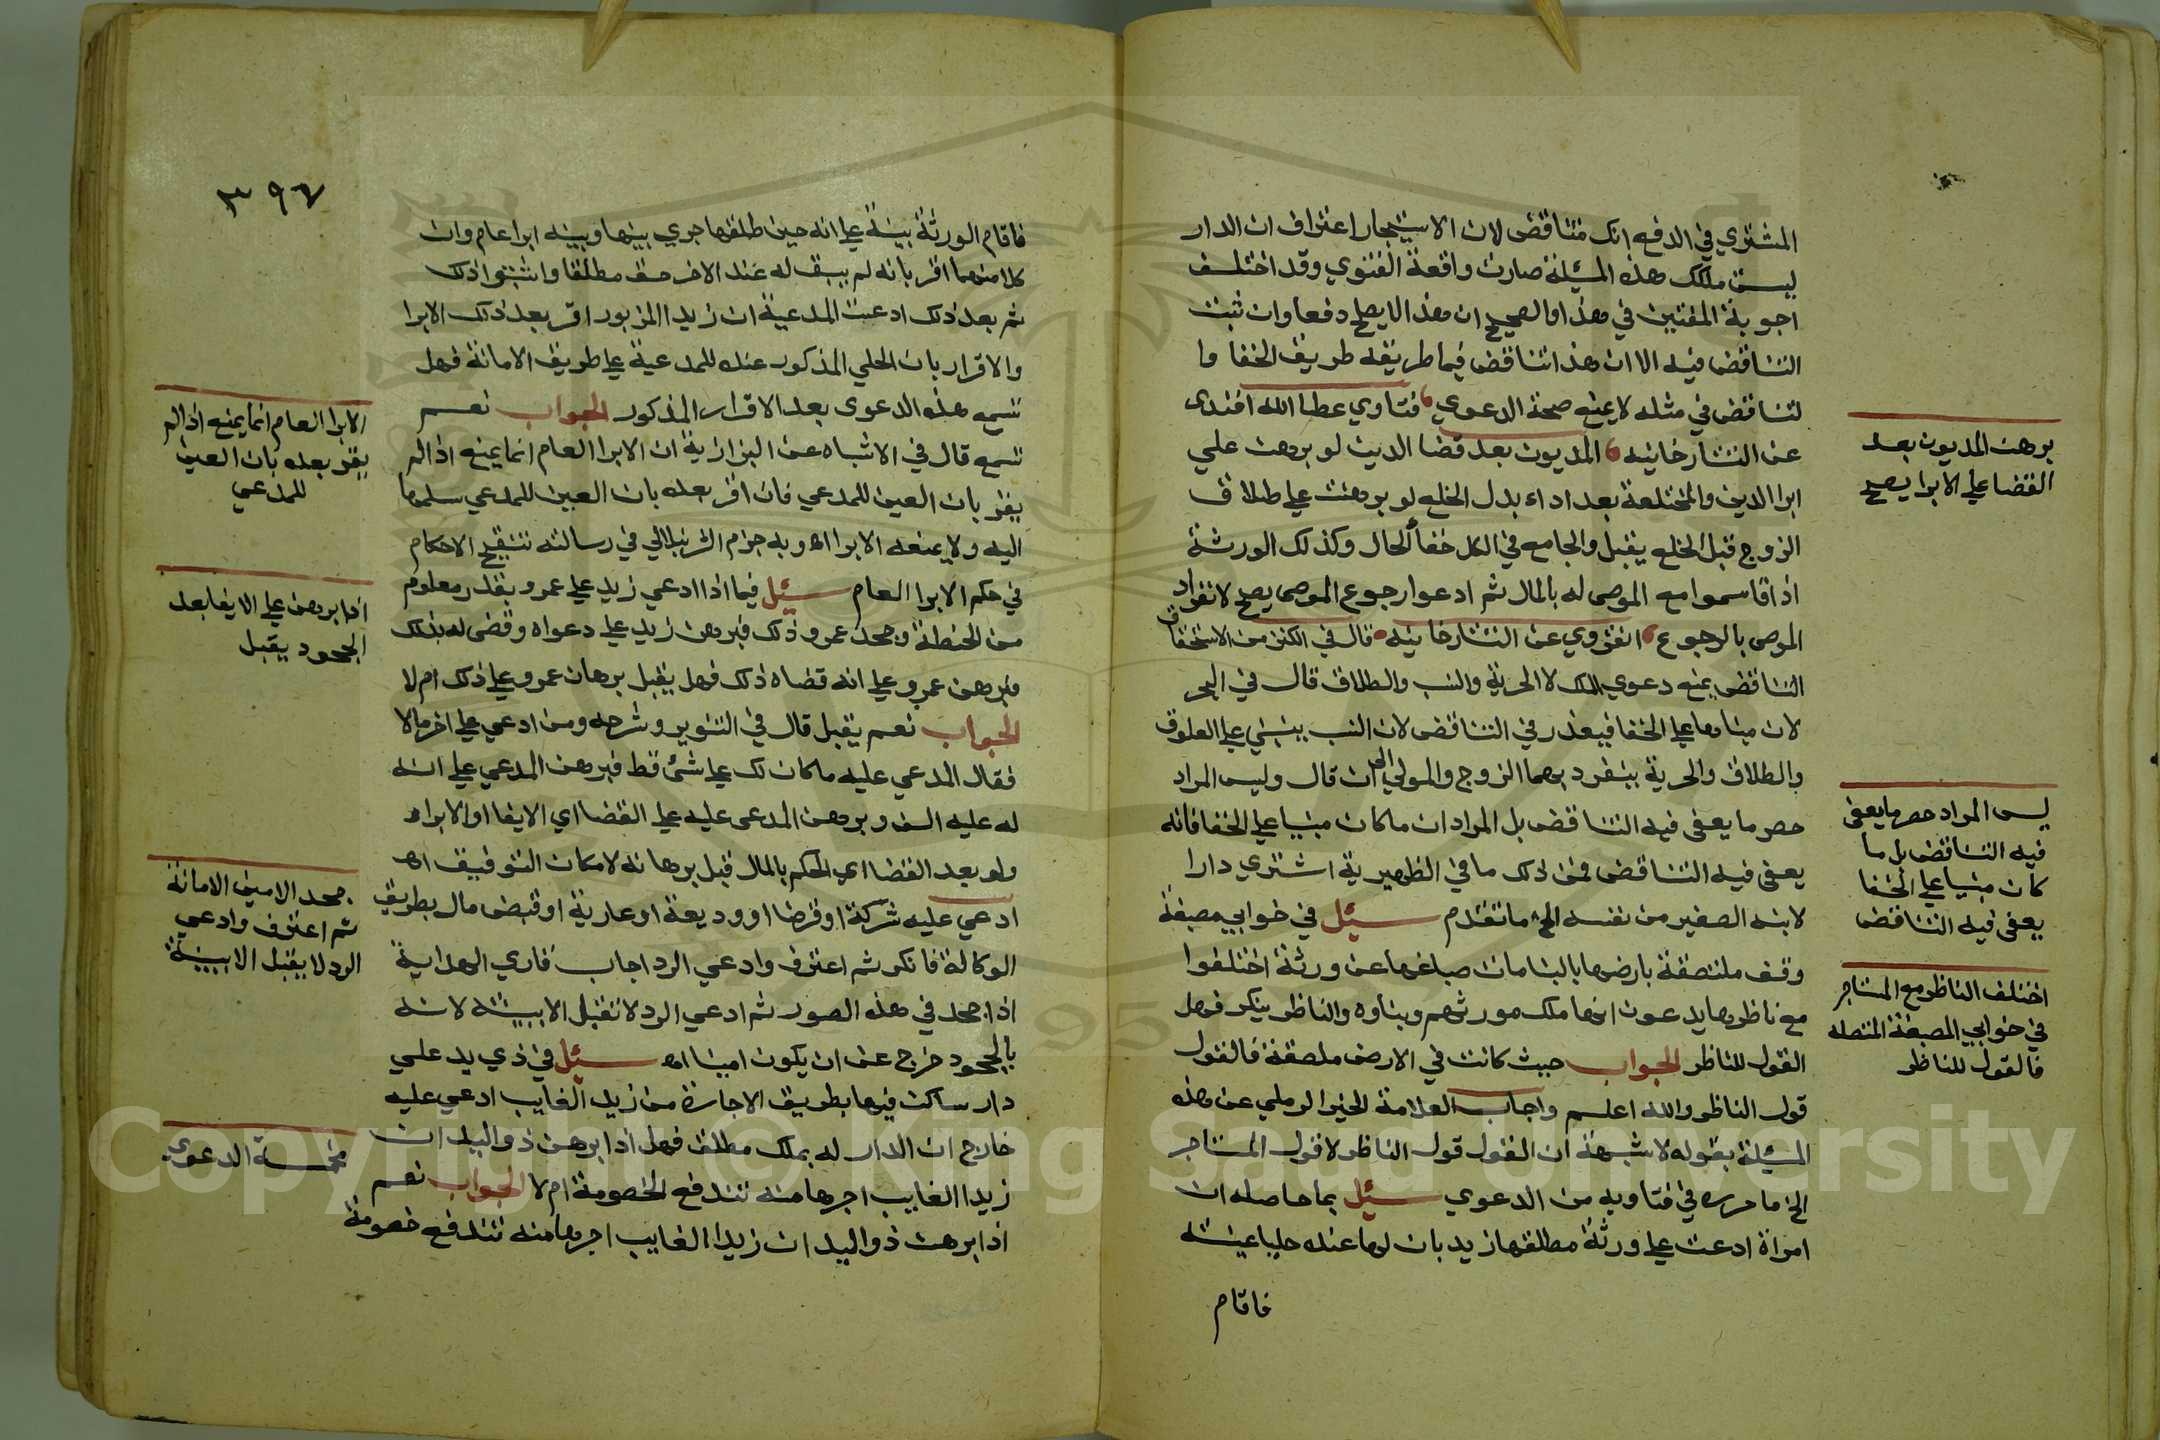 المشتري في الدفع انك متناقض لان الاستيجار اعتراف ان الدار
ليست ملكك هذه المسئلة صارت واقعة الفتوي وقد اختلف
اجوبة المفتين في هذا والصحيح ان هذا لا يصلح دفعا وان ثبت
التناقض فيه الا ان هذا تناقض فيما طريقه طريق الخفا وا
لتناقض في مثله لا يمنع صحة الدعوي فتاوي عطا الله افندي
عن التتارخانيه المديون بعد قضا الدين لو برهن علي
ابرا الدين والمختلعة بعد اداء بدل الخلع لو برهنت علي طلاق
الزوج قبل الخلع يقبل والجامع في الكل خفأ الحال وكذلك الورثة
اذا قاسموا مع الموصى له بالمال ثم ادعوا رجوع الموصى يصح لانفراد
الموصى بالرجوع انقروي عن التتارخانيه قال في الكنز من الاستحقاق
التناقض يمنع دعوي الملك لا الحرية والنسب والطلاق قال في البحر
لان مبناها على الخفا فيعذر في التناقض لان النسب يبتني على العلوق
والطلاق والحرية ينفرد بهما الزوج والمولي الى ان قال وليس المراد
حصر ما يعفى فيه التناقض بل المراد ان ما كان مبنيا على الخفا فانه
يعفى فيه التناقض فمن ذلك ما في الظهيرية اشتري دارا
لابنه الصغير من نفسه الخ ما تقدم سئل في خوابي مصبغة
وقف ملتصقة بارضها بالبنا مات صباغها عن ورثة اختلفوا
مع ناظرها يدعون انها ملك مورثهم وبناوه والناظر ينكر فهل
القول للناظر الجواب حيث كانت في الارض ملصقة فالقول
قول الناظر والله اعلم واجاب العلامة الخير الرملي عن هذه
المسئلة بقوله لا شبهة ان القول قول الناظر لا قول المستاجر
الخ ما حرره في فتاويه من الدعوي سئل بما حاصله ان
امراة ادعت على ورثة مطلقها زيد بان لها عنده حليا عينته
فاقام
برهن المديون بعد
القضا على الابرا يصح
ليس المراد حصر ما يعفى
فيه التناقض بل ما
كان مبنيا على الخفا
يعفى فيه التناقض
اختلف الناظر مع المستاجر
في خوابي المصبغة المتصلة
فالقول للناظر
٣٩٧
فاقام الورثة بينة على انه حين طلقها جري بينها وبينه ابرا عام وان
كلا منهما اقر بانه لم يبق له عند الاخر حق مطلقا واثبتوا ذلك
ثم بعد ذلك ادعت المدعية ان زيدا المزبور اقر بعد ذلك الابرا
والاقرار بان الحلي المذكور عنده للمدعية على طريق الامانة فهل
تسمع هذه الدعوى بعد الاقرار المذكور الجواب نعم
تسمع قال في الاشباه عن البزازية ان الابرا العام انما يمنع اذا لم
يقر بان العين للمدعي فان اقر بعده بان العين للمدعي سلمها
اليه ولا يمنعه الابرا اه وبه جزم الشرنبلالي في رسالته تنقيح الاحكام
في حكم الابرا العام سئل فيما اذا ادعي زيد على عمرو بقدر معلوم
من الحنطة وجحد عمرو ذلك فبرهن زيد على دعواه وقضى له بذلك
فبرهن عمرو على انه قضاه ذلك فهل يقبل برهان عمرو على ذلك ام لا
الجواب نعم يقبل قال في التنوير وشرحه ومن ادعي على اخر مالا
فقال المدعي عليه ما كان لك على شئ قط فبرهن المدعي على انه
له عليه الف وبرهن المدعى عليه على القضا اي الايفا او الابراء
ولو بعد القضا اي الحكم بالمال قبل برهانه لامكان التوفيق اه
ادعي عليه شركة او قرضا او وديعة او عارية او قبض مال بطريق
الوكالة فانكر ثم اعترف وادعي الرد اجاب قاري الهداية
اذا جحد في هذه الصور ثم ادعي الرد لا تقبل الا ببينته لانه
بالجحود خرج عن ان يكون امينا اه سئل في ذي يد علي
دار ساكن فيها بطريق الاجارة من زيد الغايب ادعي عليه
خارج ان الدار له بملك مطلق فهل اذا برهن ذو اليد ان
زيدا الغايب اجرها منه تندفع الخصومة ام لا الجواب نعم
اذا برهن ذو اليد ان زيدا الغايب اجرها منه تندفع خصومة
الابرا العام انما يمنع اذا لم
يقر بعده بان العين
للمدعي
اذا برهن على الايفا بعد
الجحود يقبل
جحد الامين الامانة
ثم اعترف وادعي
الرد لا يقبل الا ببينة
مخمسة الدعوي
Copyright © King Saud University